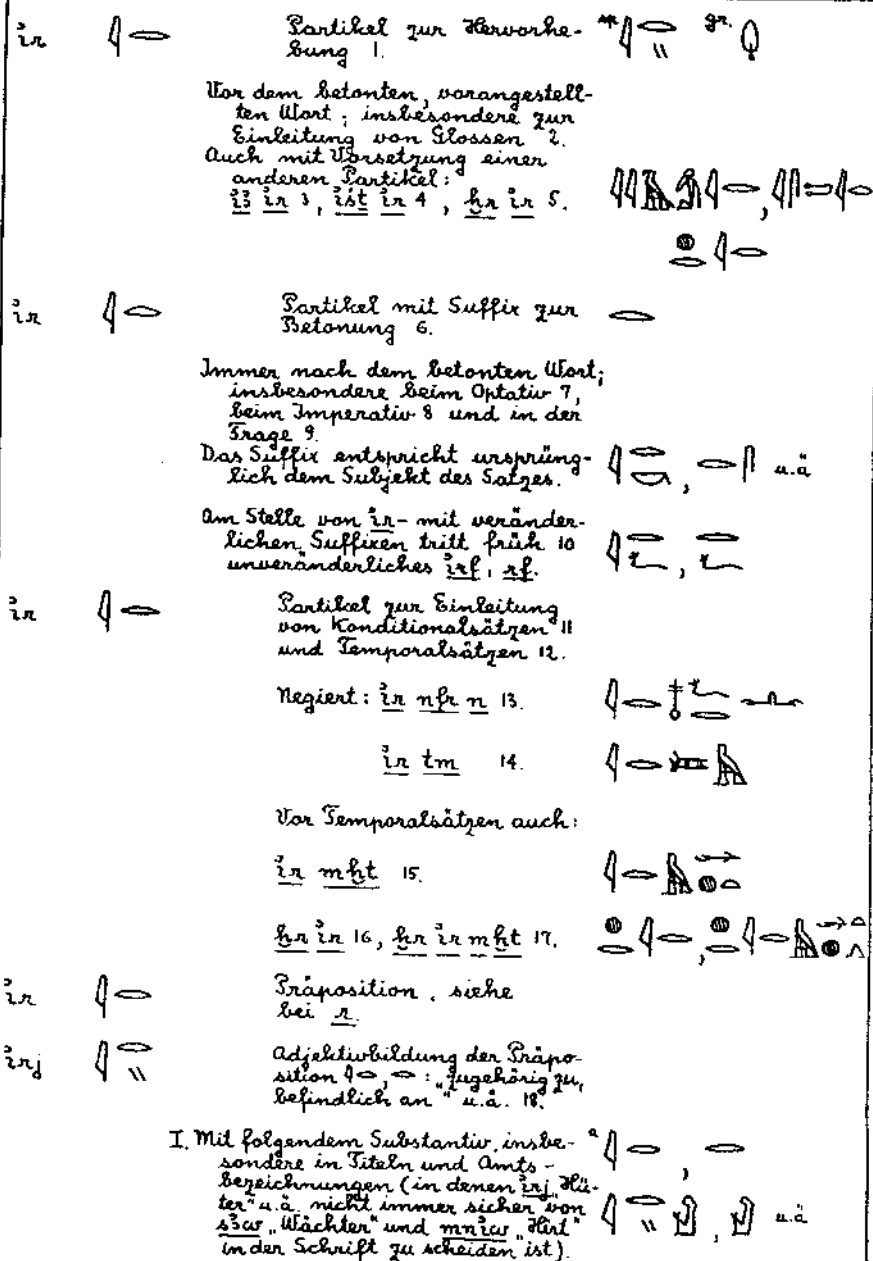 ỉr 𓇋𓂋 Partikel zur Hervorhe- 𓇋𓂋𓏭 gr.
bung 1.
Vor dem betonten, vorangestell-
ten Wort; insbesondere zur
Einleitung von Glossen 2.
Auch mit Vorsetzung einer
anderen Partikel:
ỉꜣ ỉr 3, ỉśṯ ỉr 4, ḫr ỉr 5. 𓇋𓇋𓅓𓀁𓇋𓂋, 𓇋𓋴𓍿𓇋𓂋
𓐍𓂋𓇋𓂋
ỉr 𓇋𓂋 Partikel mit Suffix zur 𓂋
Betonung 6.
Immer nach dem betonten Wort;
insbesondere beim Optativ 7,
beim Imperativ 8 und in der
Frage 9.
Das Suffix entspricht ursprüng- 𓇋𓂋𓎡, 𓂋𓋴 u.ä
lich dem Subjekt des Satzes.
Am Stelle von ỉr- mit veränder-
lichen Suffixen tritt früh 10 𓇋𓂋𓆑, 𓂋𓆑
unveränderliches ỉrf, rf.
ỉr 𓇋𓂋 Partikel zur Einleitung
von Konditionalsätzen 11
und Temporalsätzen 12.
Negiert: ỉr nfr n 13. 𓇋𓂋𓄤𓆑𓂋𓂜
ỉr tm 14. 𓇋𓂋𓍃𓅓
Vor Temporalsätzen auch:
ỉr mḫt 15. 𓇋𓂋𓅓𓆱𓐍𓏏
ḫr ỉr 16, ḫr ỉr mḫt 17. 𓐍𓂋𓇋𓂋, 𓐍𓂋𓇋𓂋𓅓𓆱𓏏𓐍𓂻
ỉr 𓇋𓂋 Präposition, siehe
bei r.
ỉrj 𓇋𓂋𓏭 Adjektivbildung der Präpo-
sition 𓇋𓂋, 𓂋 : „zugehörig zu,
befindlich an" u.ä. 18.
I. Mit folgendem Substantiv, insbe- a 𓇋𓂋, 𓂋
sondere in Titeln und Amts-
bezeichnungen (in denen ỉrj „Hü-
ter" u.ä. nicht immer sicher von 𓇋𓂋𓏭𓀹, 𓀹 u.ä
sꜣw „Wächter" und mnỉw „Hirt"
in der Schrift zu scheiden ist).